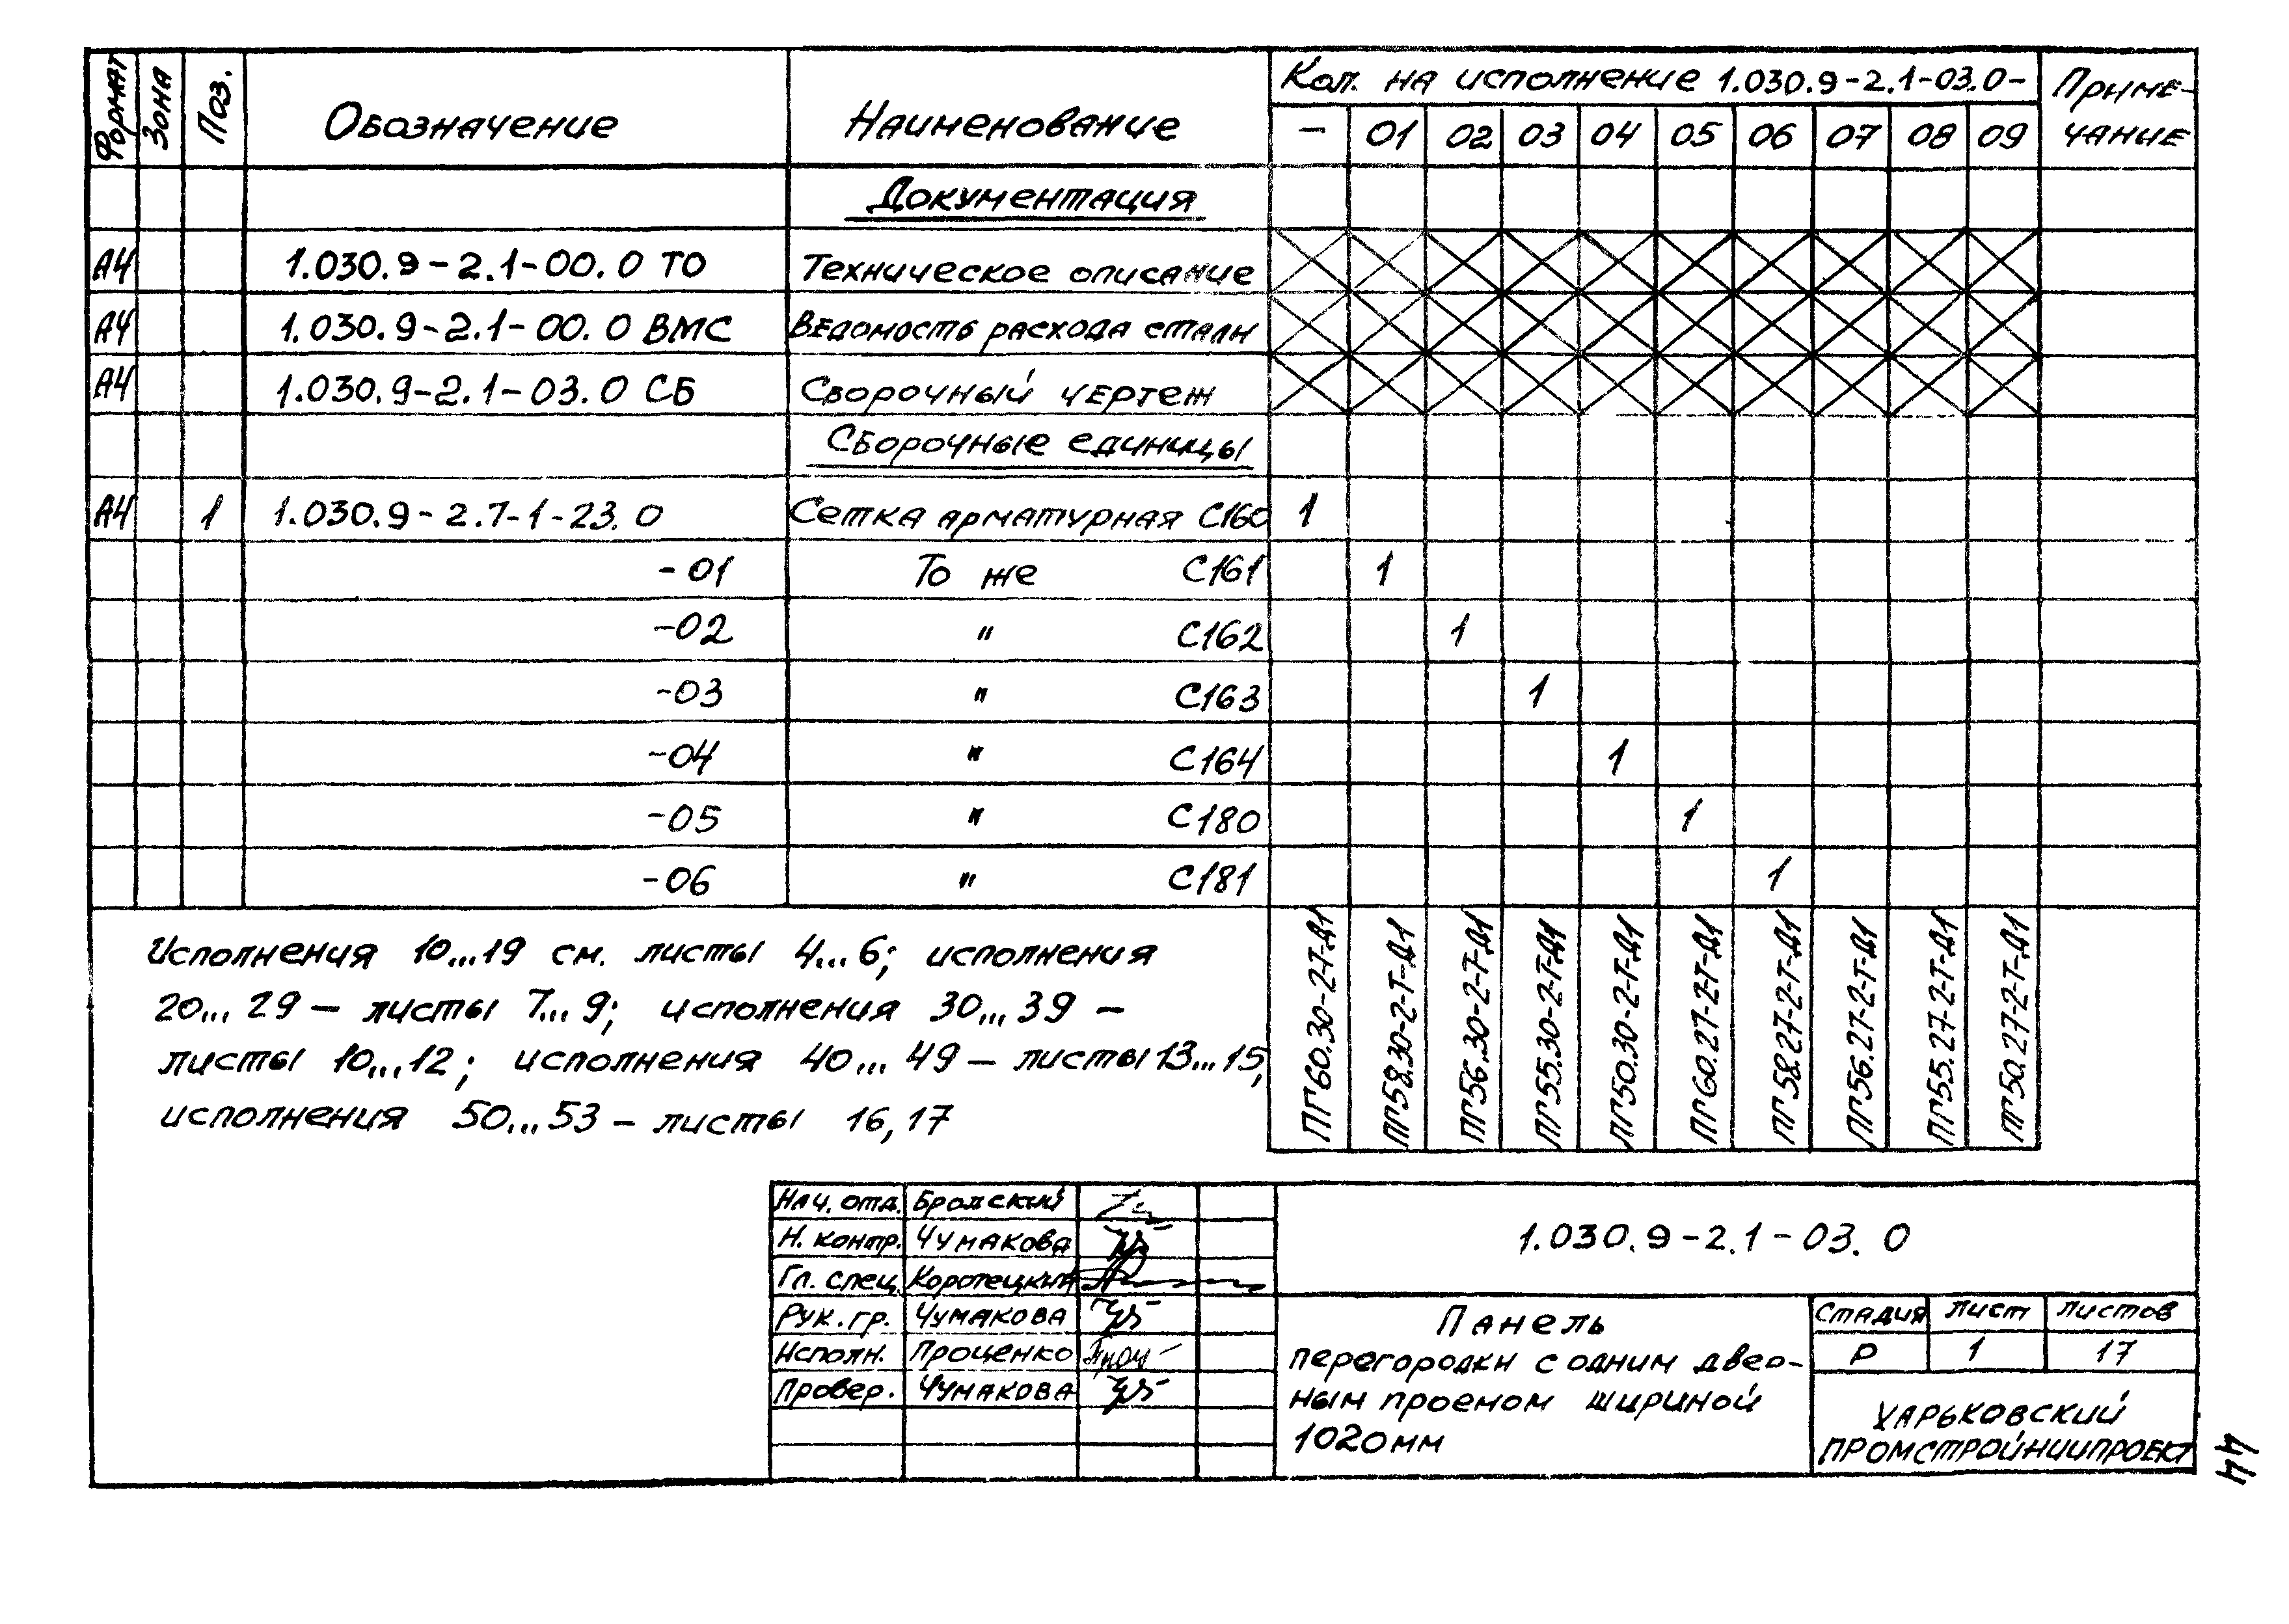 Формат Зона Поз. Обозначение Наименование Кол. на исполнение 1.030.9-2.1-03.0- Приме-
чание
- 01 02 03 04 05 06 07 08 09
Документация
А4 1.030.9-2.1-00.0 ТО Техническое описание
А4 1.030.9-2.1-00.0 ВМС Ведомость расхода стали
А4 1.030.9-2.1-03.0 СБ Сборочный чертеж
Сборочные единицы
А4 1 1.030.9-2.7-1-23.0 Сетка арматурная С160 1
-01 То же С161 1
-02 " С162 1
-03 " С163 1
-04 " С164 1
-05 " С180 1
-06 " С181 1
ПГ60.30-2-Т-Д1 ПГ58.30-2-Т-Д1 ПГ56.30-2-Т-Д1 ПГ55.30-2-Т-Д1 ПГ50.30-2-Т-Д1 ПГ60.27-2-Т-Д1 ПГ58.27-2-Т-Д1 ПГ56.27-2-Т-Д1 ПГ55.27-2-Т-Д1 ПГ50.27-2-Т-Д1
Исполнения 10...19 см. листы 4...6; исполнения
20...29 – листы 7...9; исполнения 30...39 –
листы 10...12; исполнения 40...49 – листы 13...15,
исполнения 50...53 – листы 16,17
Нач. отд. Бродский
Н. контр. Чумакова
Гл. спец. Коротецкий
Рук. гр. Чумакова
Исполн. Проценко
Провер. Чумакова
1.030.9-2.1-03.0
Панель
перегородки с одним двер-
ным проемом шириной
1020мм
Стадия Лист Листов
Р 1 17
Харьковский
ПРОМСТРОЙНИИПРОЕКТ
44